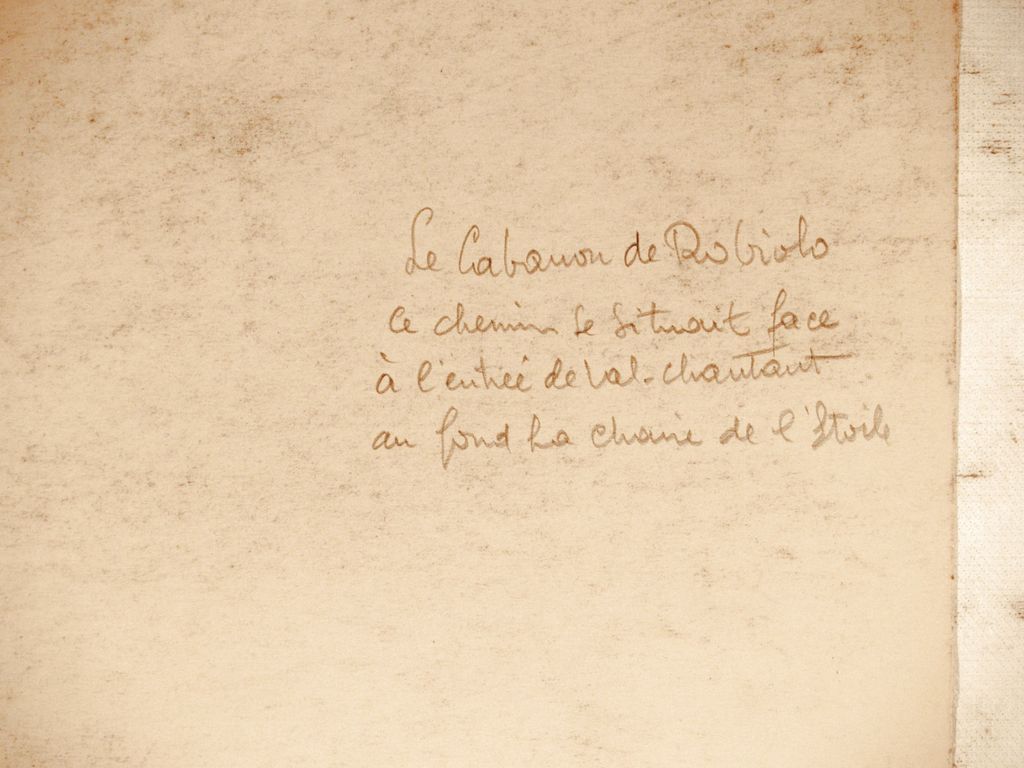 Le Cabanon de Robiolo
Ce chemin se situait face
à l'entrée de Val-chantant
au fond La chaine de l'Etoile